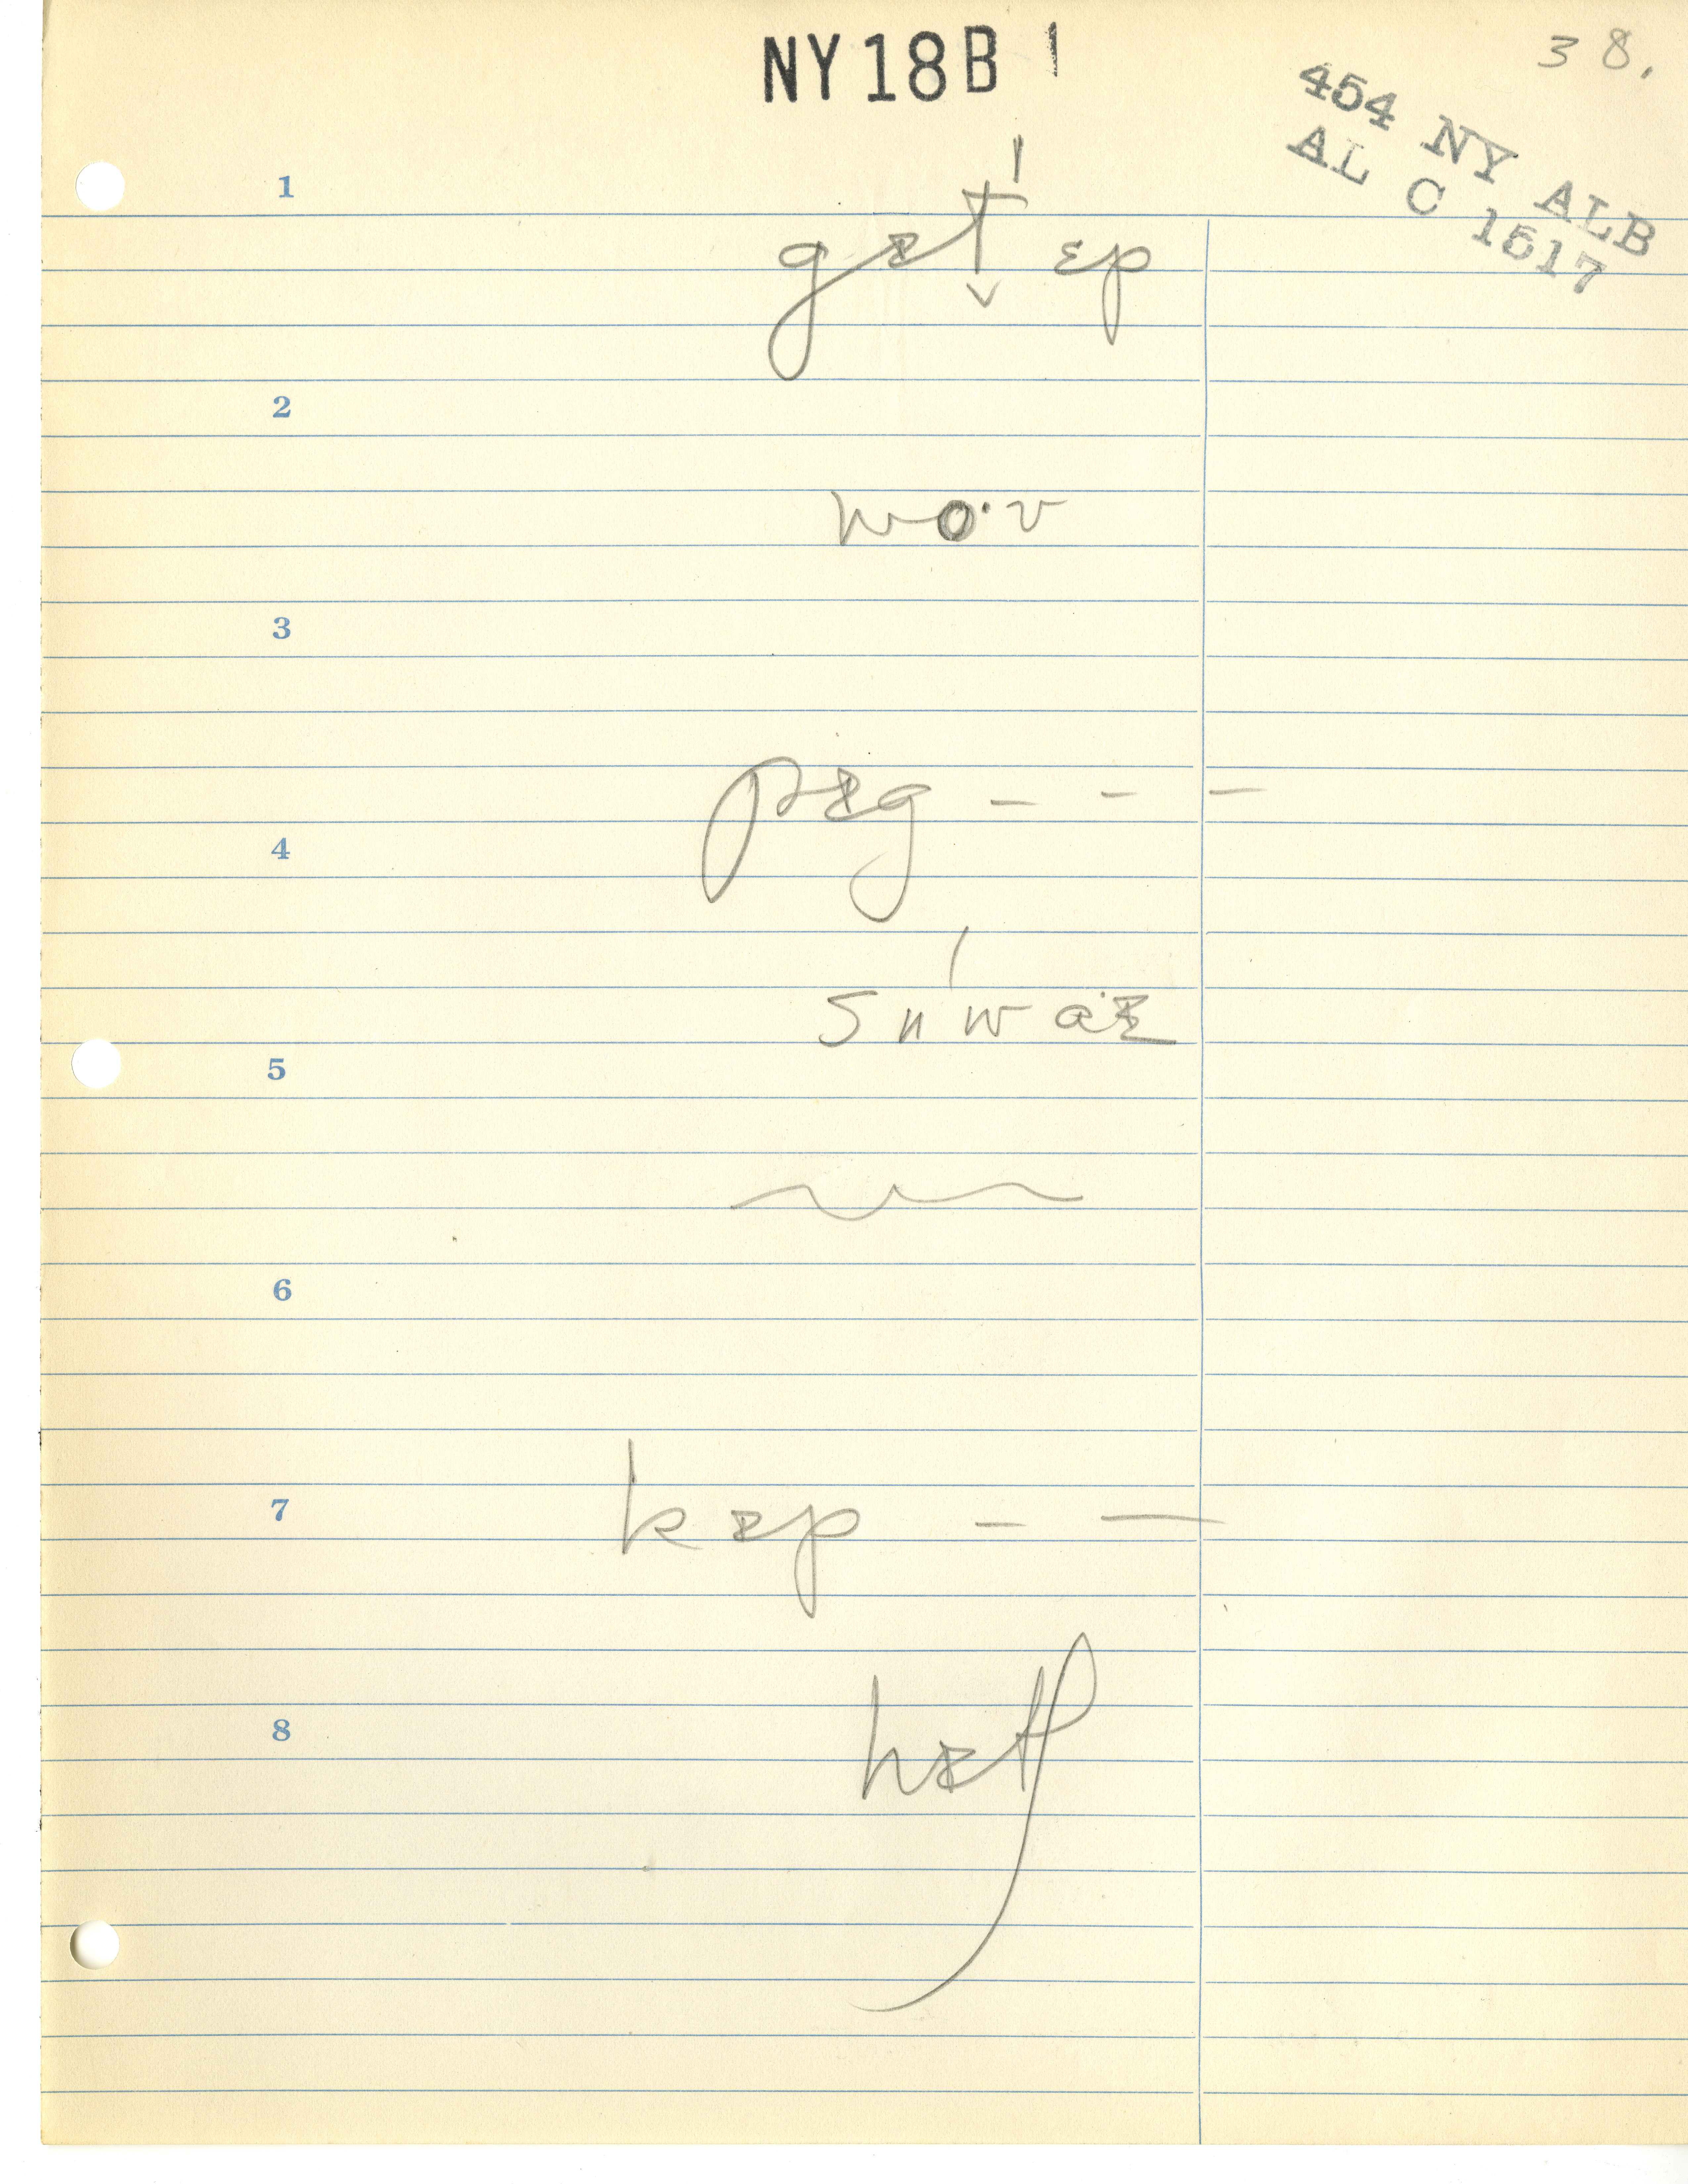 NY18B 1
38.
454 NY ALB
AL C 1517
1
gᵻt̬ˈ ɛp
2
wo·v
3
pᵻg - - -
4
suˈwɑ·ᵻ
5
6
7 kᵻp - -
8 hᵻtʃ